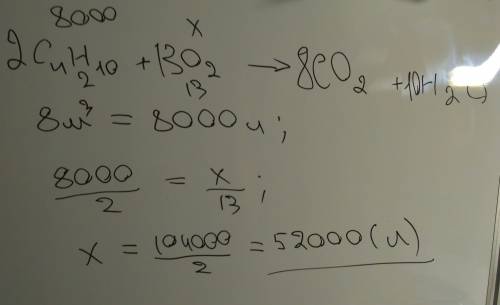 8000 x
2C₄H₁₀ + 13O₂ → 8CO₂ + 10H₂O
2 13
8м³ = 8000л;
8000/2 = x/13;
x = 104000/2 = 52000 (л)